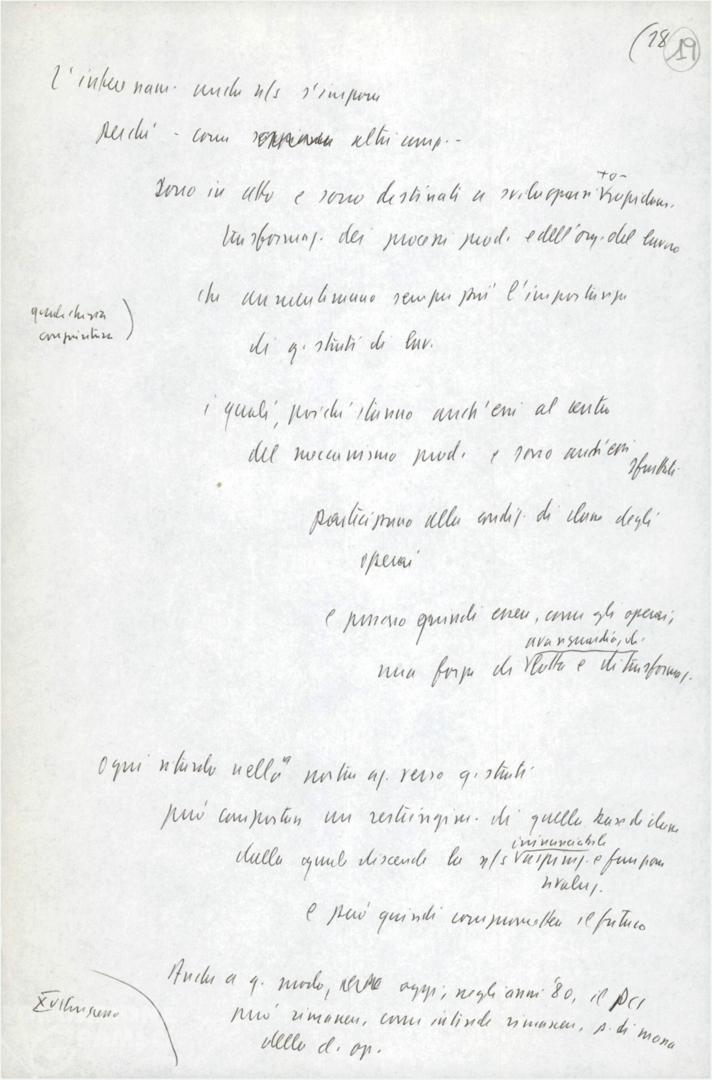 (18 19
L'intervento anche n/s s'impone
perché - come altri comp. -
sono in atto e sono destinati a svilupparsi + o - rapidam.
trasformaz. dei processi prod. e dell'org. del lavoro
che aumenteranno sempre più l'importanza
qualche ora
di q. strati di lav.
i quali, poiché stanno anch'essi al centro
del meccanismo prod. e sono anch'essi sfruttati
partecipano alla condiz. di classe degli
operai
e possono quindi essere, come gli operai,
avanguardia, di
una forza di lotta e di trasformaz.
Ogni ritardo nella nostra az. verso q. strati
può comportare un restringim. di quella base di classe
irrinunciabile
dalla quale discende la n/s ispiraz. e funzione
rivoluz.
e può quindi compromettere il futuro
Anche a q. modo, oggi, negli anni '80, il PCI
XVI Congresso
può rimanere, come intende rimanere, p. di massa
della cl. op.